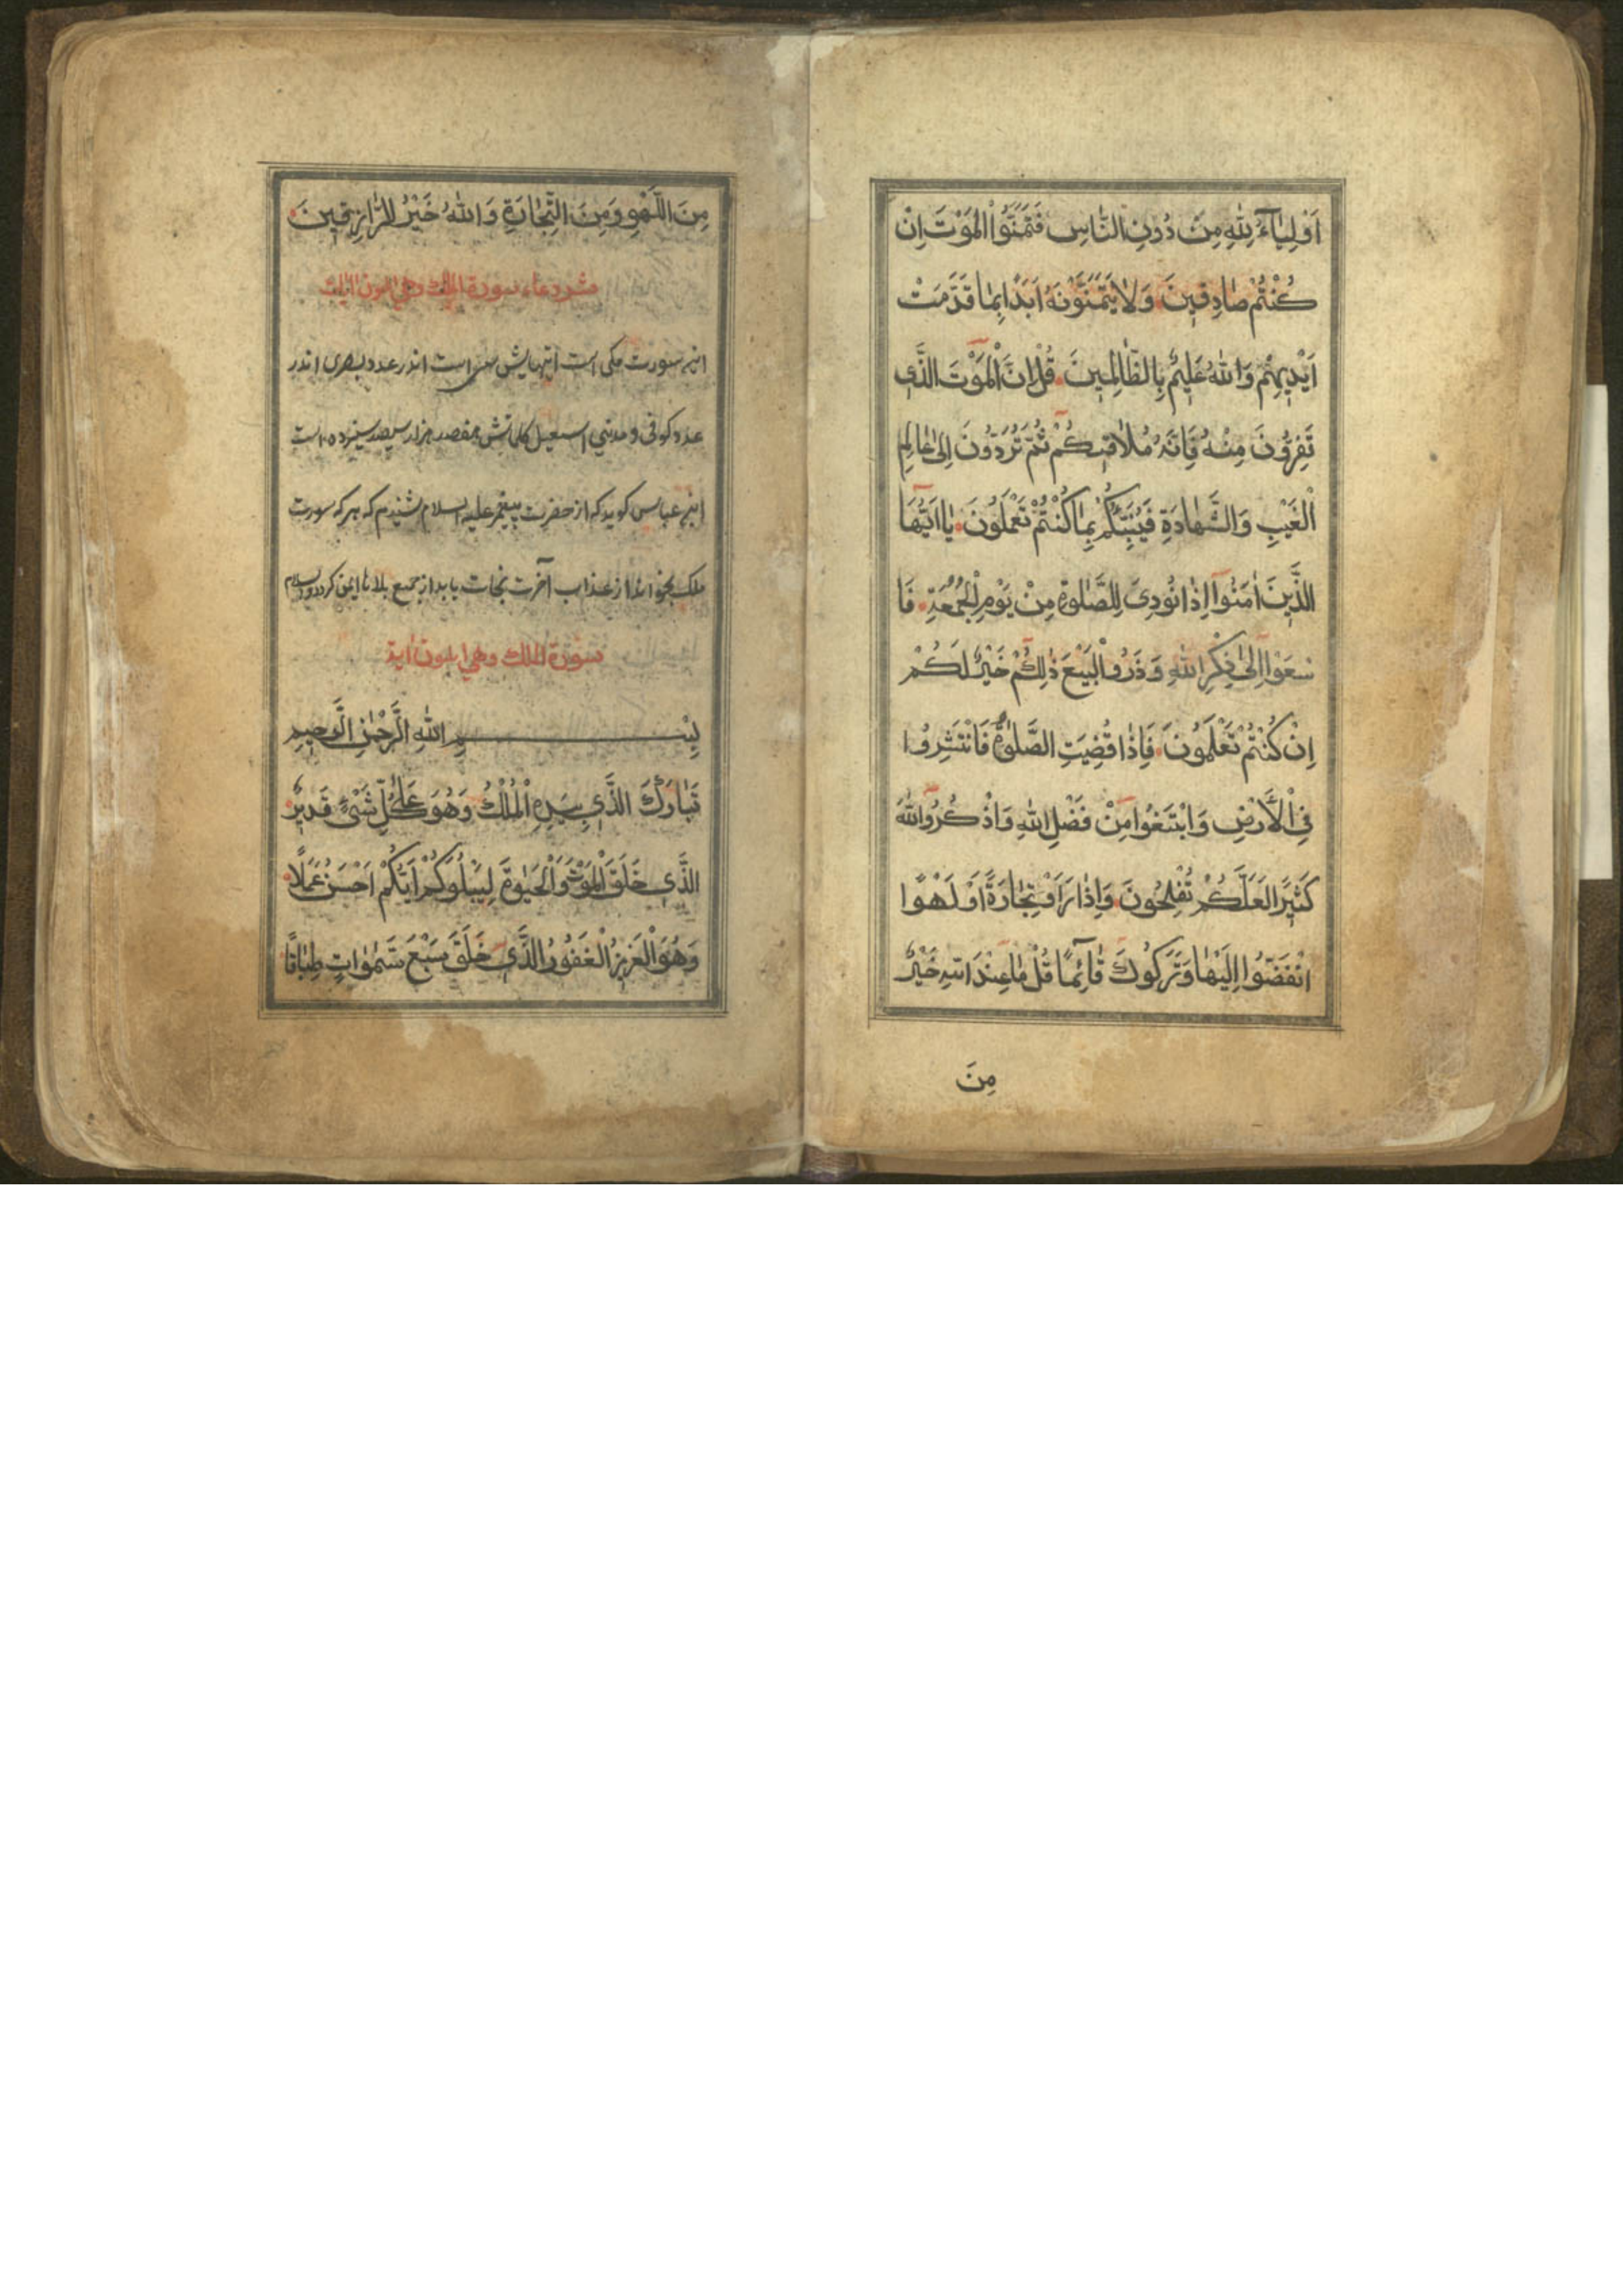 اَوْلِيَآءُ لِلّٰهِ مِنْ دُونِ النَّاسِ فَتَمَنَّوُا الْمَوْتَ اِنْ
كُنْتُمْ صَادِقِينَ وَلَا يَتَمَنَّوْنَهُ اَبَدًا بِمَا قَدَّمَتْ
اَيْدِيهِمْ وَاللّٰهُ عَلِيمٌ بِالظَّالِمِينَ قُلْ اِنَّ الْمَوْتَ الَّذِي
تَفِرُّونَ مِنْهُ فَاِنَّهُ مُلَاقِيكُمْ ثُمَّ تُرَدُّونَ اِلٰى عَالِمِ
الْغَيْبِ وَالشَّهَادَةِ فَيُنَبِّئُكُمْ بِمَا كُنْتُمْ تَعْمَلُونَ يَا اَيُّهَا
الَّذِينَ اٰمَنُوٓا اِذَا نُودِيَ لِلصَّلٰوةِ مِنْ يَوْمِ الْجُمُعَةِ فَا
سْعَوْا اِلٰى ذِكْرِ اللّٰهِ وَذَرُوا الْبَيْعَ ذٰلِكُمْ خَيْرٌ لَكُمْ
اِنْ كُنْتُمْ تَعْلَمُونَ فَاِذَا قُضِيَتِ الصَّلٰوةُ فَانْتَشِرُوا
فِي الْاَرْضِ وَابْتَغُوا مِنْ فَضْلِ اللّٰهِ وَاذْكُرُوا اللّٰهَ
كَثِيرًا لَعَلَّكُمْ تُفْلِحُونَ وَاِذَا رَاَوْ تِجَارَةً اَوْ لَهْوًا
انْفَضُّوا اِلَيْهَا وَتَرَكُوكَ قَآئِمًا قُلْ مَا عِنْدَ اللّٰهِ خَيْرٌ
مِنَ
مِنَ اللَّهْوِ وَمِنَ التِّجَارَةِ وَاللّٰهُ خَيْرُ الرَّازِقِينَ
سورة الملك وهي
اين سورت مکی است ايتهايش سی است اندر عدد بصری اندر
عدد کوفی و مدنی کلماتش هزار سيصد سيزده است
ابن عباس کويد که از حضرت پيغمبر عليه السلام شنيدم که هر که سورت
ملک بخواند از عذاب آخرت نجات يابد از جميع بلاها ايمن کردد والسلام
سورة الملك وهي اية
بِسْمِ اللّٰهِ الرَّحْمٰنِ الرَّحِيمِ
تَبَارَكَ الَّذِي بِيَدِهِ الْمُلْكُ وَهُوَ عَلٰى كُلِّ شَيْءٍ قَدِيرٌ
الَّذِي خَلَقَ الْمَوْتَ وَالْحَيٰوةَ لِيَبْلُوَكُمْ اَيُّكُمْ اَحْسَنُ عَمَلًا
وَهُوَ الْعَزِيزُ الْغَفُورُ الَّذِي خَلَقَ سَبْعَ سَمٰوَاتٍ طِبَاقًا